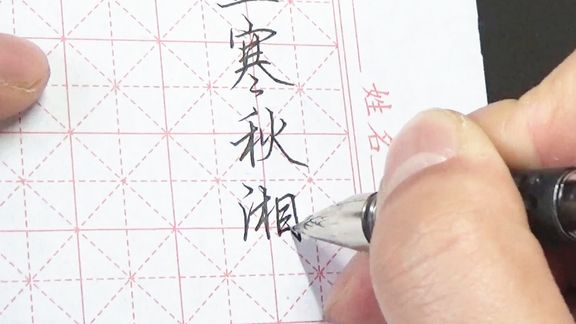 寒秋湘
姓名